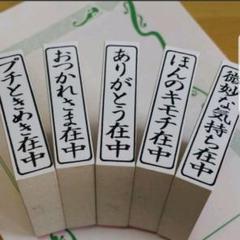 プチときめき在中
おつかれさま在中
ありがとう在中
ほんのキモチ在中
微妙な気持ち在中